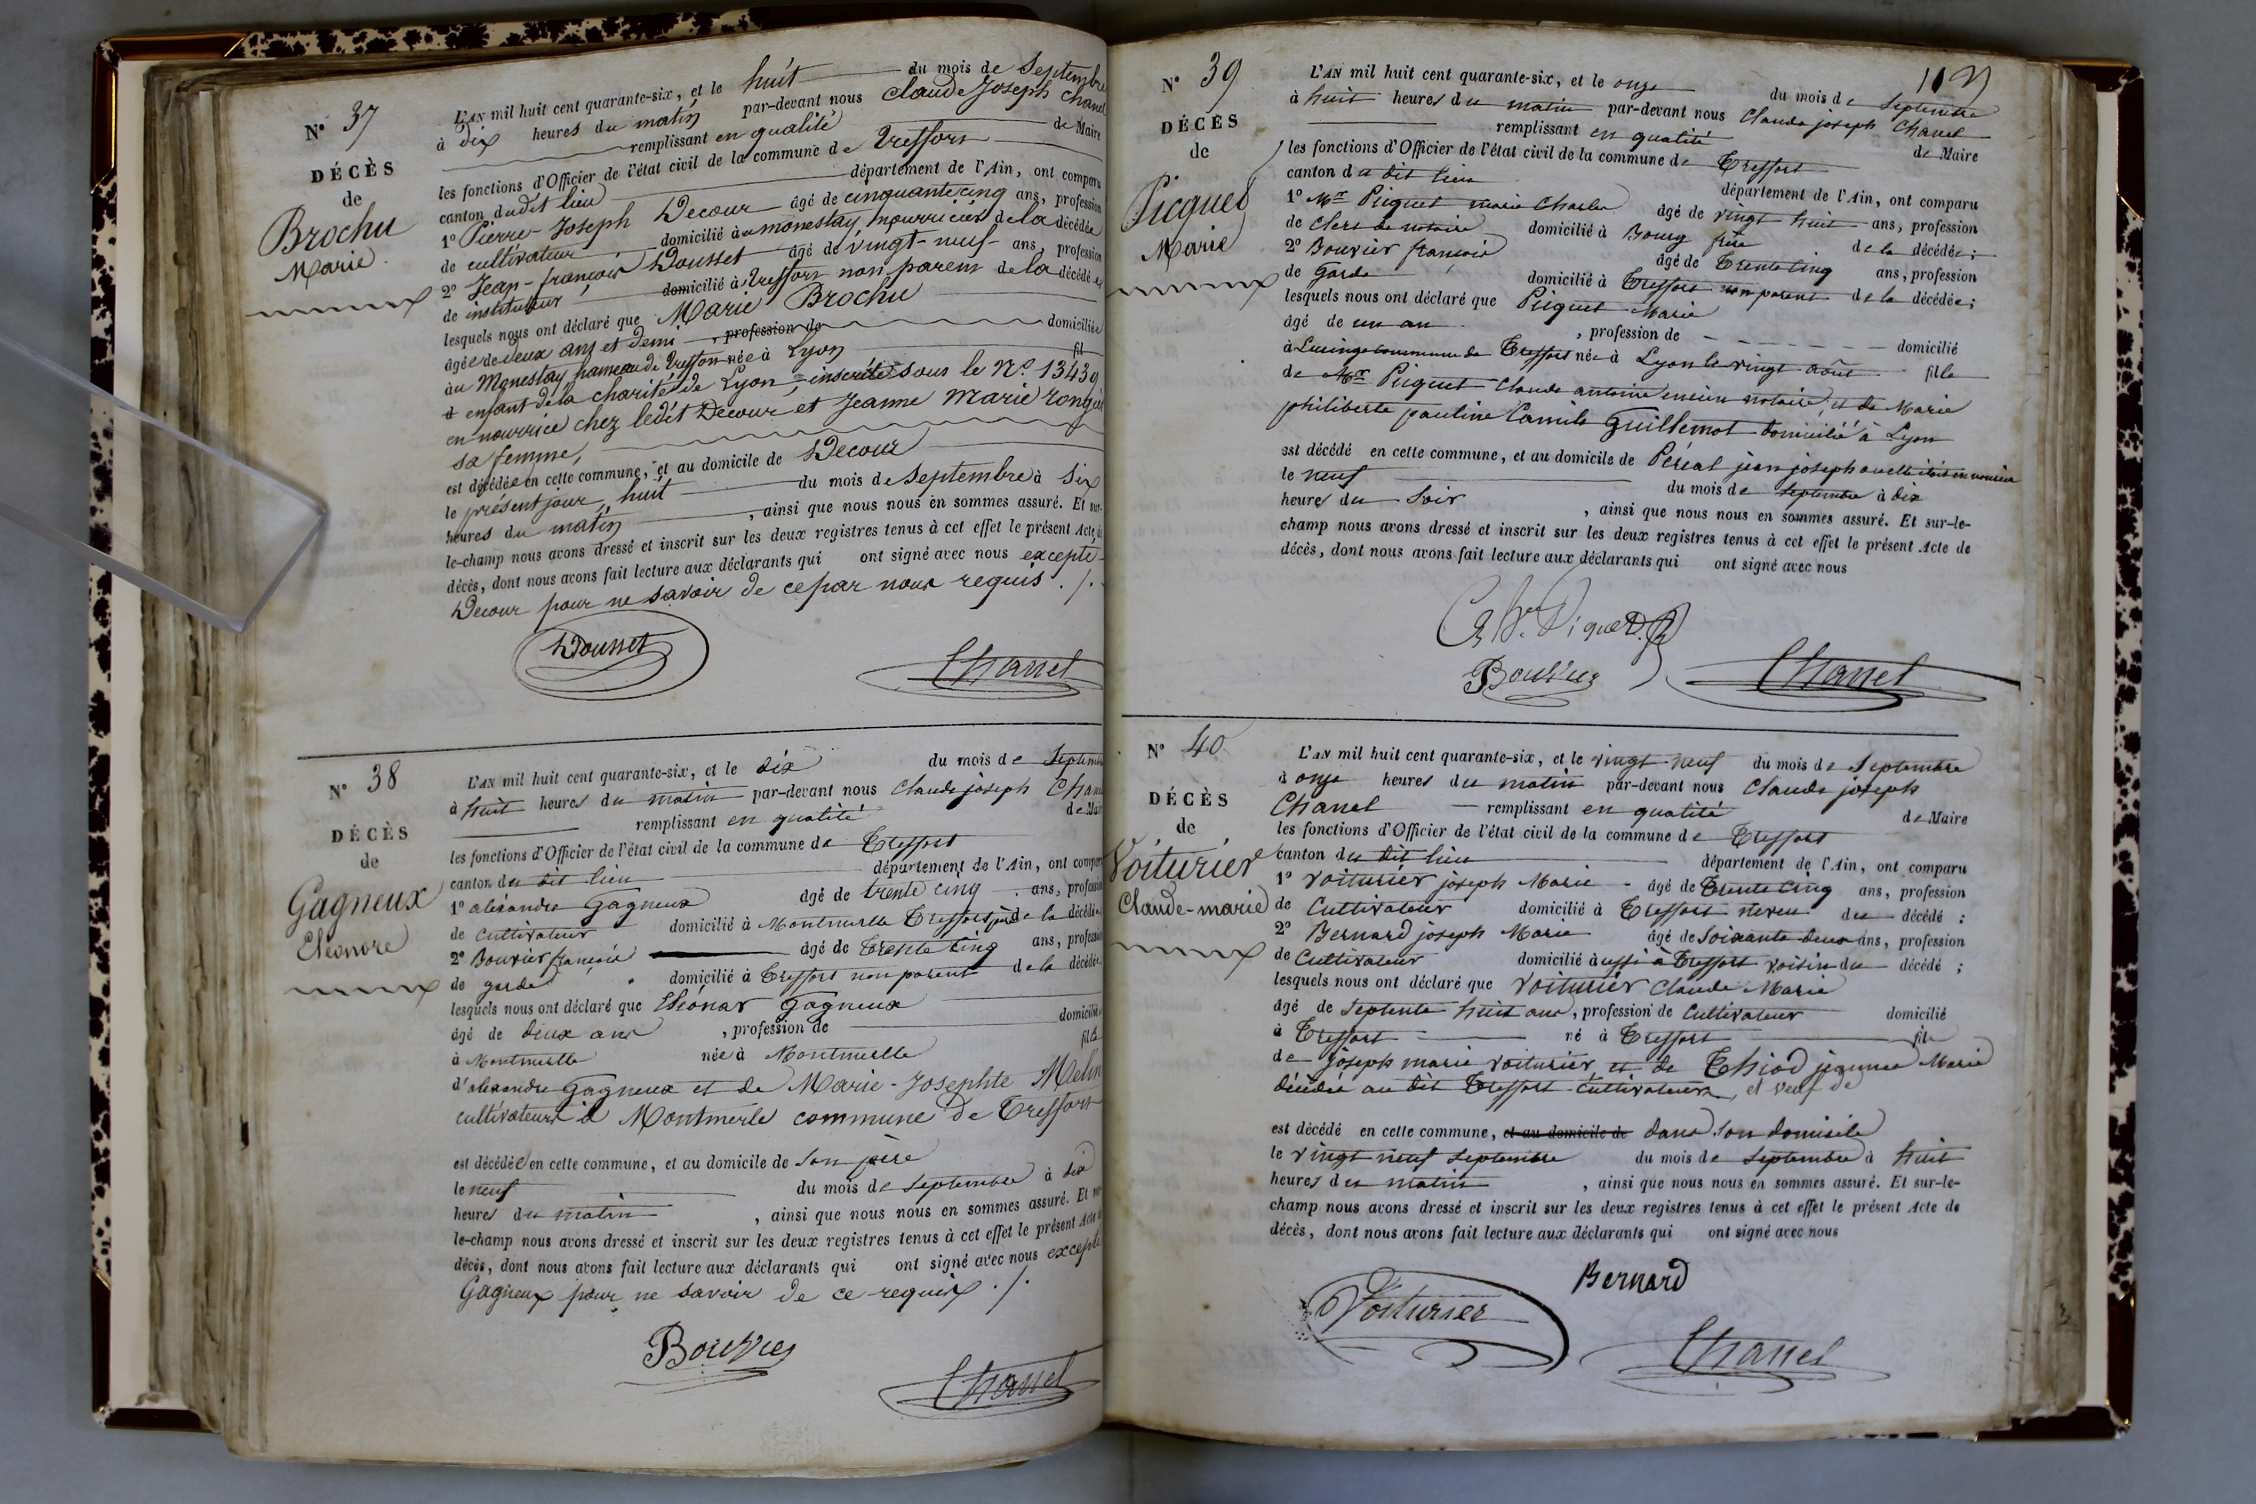 N° 37
DÉCÈS
de
Brochu
Marie
L'AN mil huit cent quarante-six, et le huit du mois de Septembre
à dix heures du matin par-devant nous Claude Joseph Chanel
remplissant en qualité de Maire
les fonctions d'Officier de l'état civil de la commune de Treffort
canton dudit lieu département de l'Ain, ont comparu
1° Pierre-Joseph Decour âgé de cinquante cinq ans, profession
de cultivateur domicilié à monestay nourricier de la décédée
2° Jean-françois Dousset âgé de vingt-neuf ans, profession
de instituteur domicilié à Treffort non parent de la décédée
lesquels nous ont déclaré que Marie Brochu
âgée de deux ans et demi , profession de domiciliée
au Monestay hameau de Treffort née à Lyon fil
d enfant de la charité de Lyon, inscrite sous le N° 13439
en nourrice chez ledit Decour et Jeanne Marie
sa femme,
est décédée en cette commune, et au domicile de Decour
le présent jour, huit du mois de Septembre à six
heures du matin , ainsi que nous nous en sommes assuré. Et sur-
le-champ nous avons dressé et inscrit sur les deux registres tenus à cet effet le présent Acte de
décès, dont nous avons fait lecture aux déclarants qui ont signé avec nous excepté
Decour pour ne savoir de ce par nous requis ./.
Dousset
Chanel
N° 38
DÉCÈS
de
Gagneux
Eléonore
L'AN mil huit cent quarante-six, et le dix du mois de Septembre
à huit heures du matin par-devant nous Claude joseph Chanel
remplissant en qualité de Maire
les fonctions d'Officier de l'état civil de la commune de Treffort
canton du dit lieu département de l'Ain, ont comparu
1° alexandre Gagneux âgé de trente cinq ans, profession
de Cultivateur domicilié à Montmerle Treffort père de la décédée
2° Bouvier françois âgé de trente cinq ans, profession
de garde domicilié à Treffort non parent de la décédée
lesquels nous ont déclaré que Eléonor Gagneux
âgé de deux ans , profession de domicilié
à Montmerle née à Montmerle fille
d'alexandre Gagneux et de Marie-Josephte Melin
cultivateurs à Montmerle commune de Treffort
est décédée en cette commune, et au domicile de son père
le neuf du mois de septembre à dix
heures du matin , ainsi que nous nous en sommes assuré. Et sur-
le-champ nous avons dressé et inscrit sur les deux registres tenus à cet effet le présent Acte de
décès, dont nous avons fait lecture aux déclarants qui ont signé avec nous excepté
Gagneux pour ne savoir de ce requis ./.
Bouvier
Chanel
N° 39
DÉCÈS
de
Picquet
Marie
L'AN mil huit cent quarante-six, et le onze du mois de Septembre
à huit heures du matin par-devant nous Claude joseph Chanel
remplissant en qualité de Maire
les fonctions d'Officier de l'état civil de la commune de Treffort
canton du dit lieu département de l'Ain, ont comparu
1° Mr Picquet marie Charles âgé de vingt huit ans, profession
de Clerc de notaire domicilié à Bourg frère de la décédée;
2° Bouvier françois âgé de Trente cinq ans, profession
de Garde domicilié à Treffort non parent de la décédée;
lesquels nous ont déclaré que Picquet Marie
âgé de un an , profession de domicilié
à Lucinge commune de Treffort née à Lyon le vingt août fille
de Mr Picquet Claude antoine ancien notaire, et de Marie
philiberte pauline Camile Guillemot domicilié à Lyon
est décédé en cette commune, et au domicile de Péréal jean joseph ou elle était en nourrice
le neuf du mois de septembre à dix
heures du Soir , ainsi que nous nous en sommes assuré. Et sur-le-
champ nous avons dressé et inscrit sur les deux registres tenus à cet effet le présent Acte de
décès, dont nous avons fait lecture aux déclarants qui ont signé avec nous
Bouvier
Chanel
N° 40
DÉCÈS
de
Voiturier
Claude-marie
L'AN mil huit cent quarante-six, et le vingt neuf du mois de Septembre
à onze heures du matin par-devant nous Claude joseph
Chanel remplissant en qualité de Maire
les fonctions d'Officier de l'état civil de la commune de Treffort
canton du dit lieu département de l'Ain, ont comparu
1° Voiturier joseph Marie âgé de Trente cinq ans, profession
de Cultivateur domicilié à Treffort neveu du décédé ;
2° Bernard joseph Marie âgé de Soixante deux ans, profession
de Cultivateur domicilié aussi à Treffort voisin du décédé ;
lesquels nous ont déclaré que Voiturier Claude Marie
âgé de Septente huit ans , profession de Cultivateur domicilié
à Treffort né à Treffort fils
de joseph marie Voiturier et de Thiod jeanne Marie
décédée au dit Treffort Cultivateurs, et veuf de
est décédé en cette commune, et au domicile de dans son domicile
le vingt neuf septembre du mois de Septembre à huit
heures du matin , ainsi que nous nous en sommes assuré. Et sur-le-
champ nous avons dressé et inscrit sur les deux registres tenus à cet effet le présent Acte de
décès, dont nous avons fait lecture aux déclarants qui ont signé avec nous
Bernard
Voiturier
Chanel